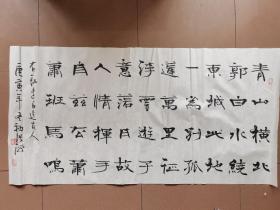 青山橫北
郭白水繞
東城此地
一為別孤
蓬萬里征
浮雲遊子
意落日故
人情揮手
自茲去蕭
蕭班馬鳴
李白送友人
庚寅年